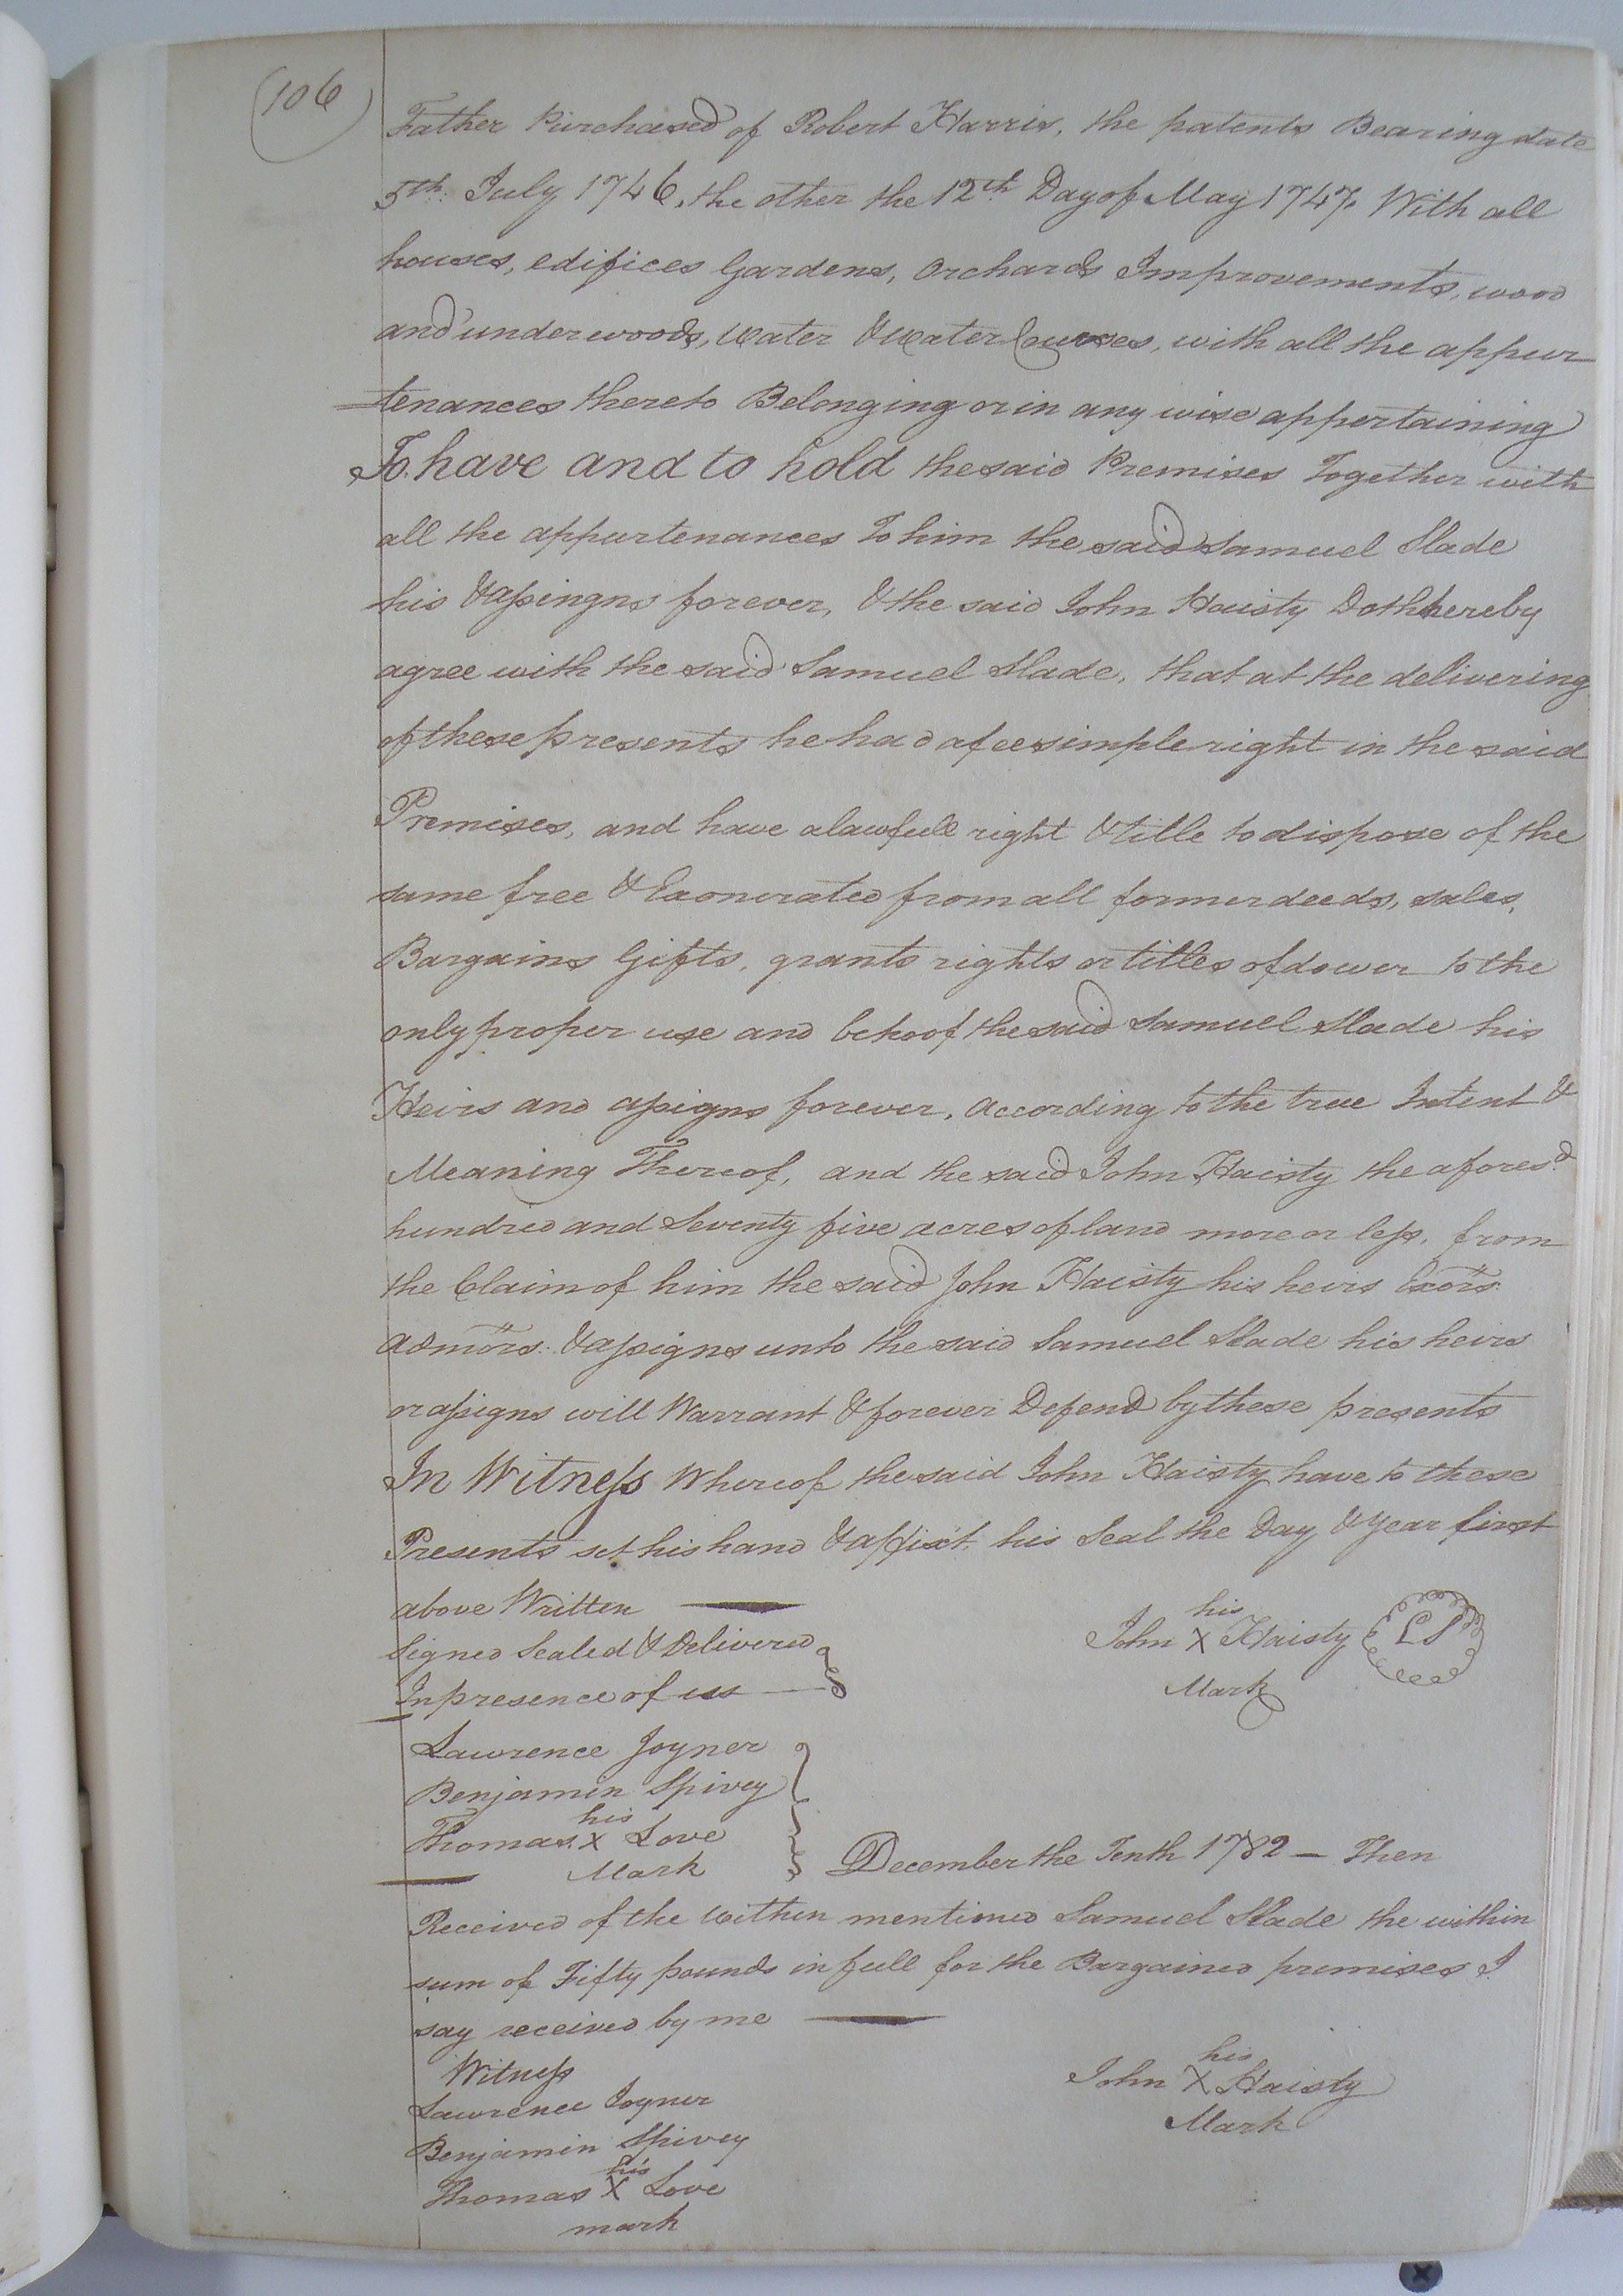 (106)
Father Purchased of Robert Harris, the patents Bearing date
5th: July 1746, the other the 12th Day of May 1747. With all
houses, edifices Gardens, Orchards Improvements, wood
and underwoods, Water & Water Courses, with all the appur
=tenances thereto Belonging or in any wise appertaining
To have and to hold the said Premises Together with
all the appurtenances To him the said Samuel Slade
his & assingns forever, & the said John Haisty Doth hereby
agree with the said Samuel Slade, that at the delivering
of these presents he had a fee simple right in the said
Premises, and have a lawfull right & title to dispose of the
same free & Exonerated from all former deeds, sales,
Bargains Gifts, grants rights or titles of dower to the
only proper use and behoof the said Samuel Slade his
Heirs and assigns forever, According to the true Intent &
Meaning Thereof, and the said John Haisty the aforesd
hundred and Seventy five acres of land more or less, from
the Claim of him the said John Haisty his heirs Exors.
Admors: & assigns unto the said Samuel Slade his heirs
or assigns will Warrant & forever Defend by these presents
In Witness Whereof the said John Haisty have to these
Presents set his hand & affix't his Seal the Day & Year first
above Written
his
John X Haisty LS
Mark
Signed Sealed & Delivered
In presence of us
Lawrence Joyner
Benjamin Spivey
his
Thomas X Love
Mark
December the Tenth 1782 — Then
Received of the Within mentioned Samuel Slade the within
sum of Fifty pounds in full for the Bargained premises I
say received by me
Witness
his
John X Haisty
Mark
Lawrence Joyner
Benjamin Spivey
his
Thomas X Love
mark